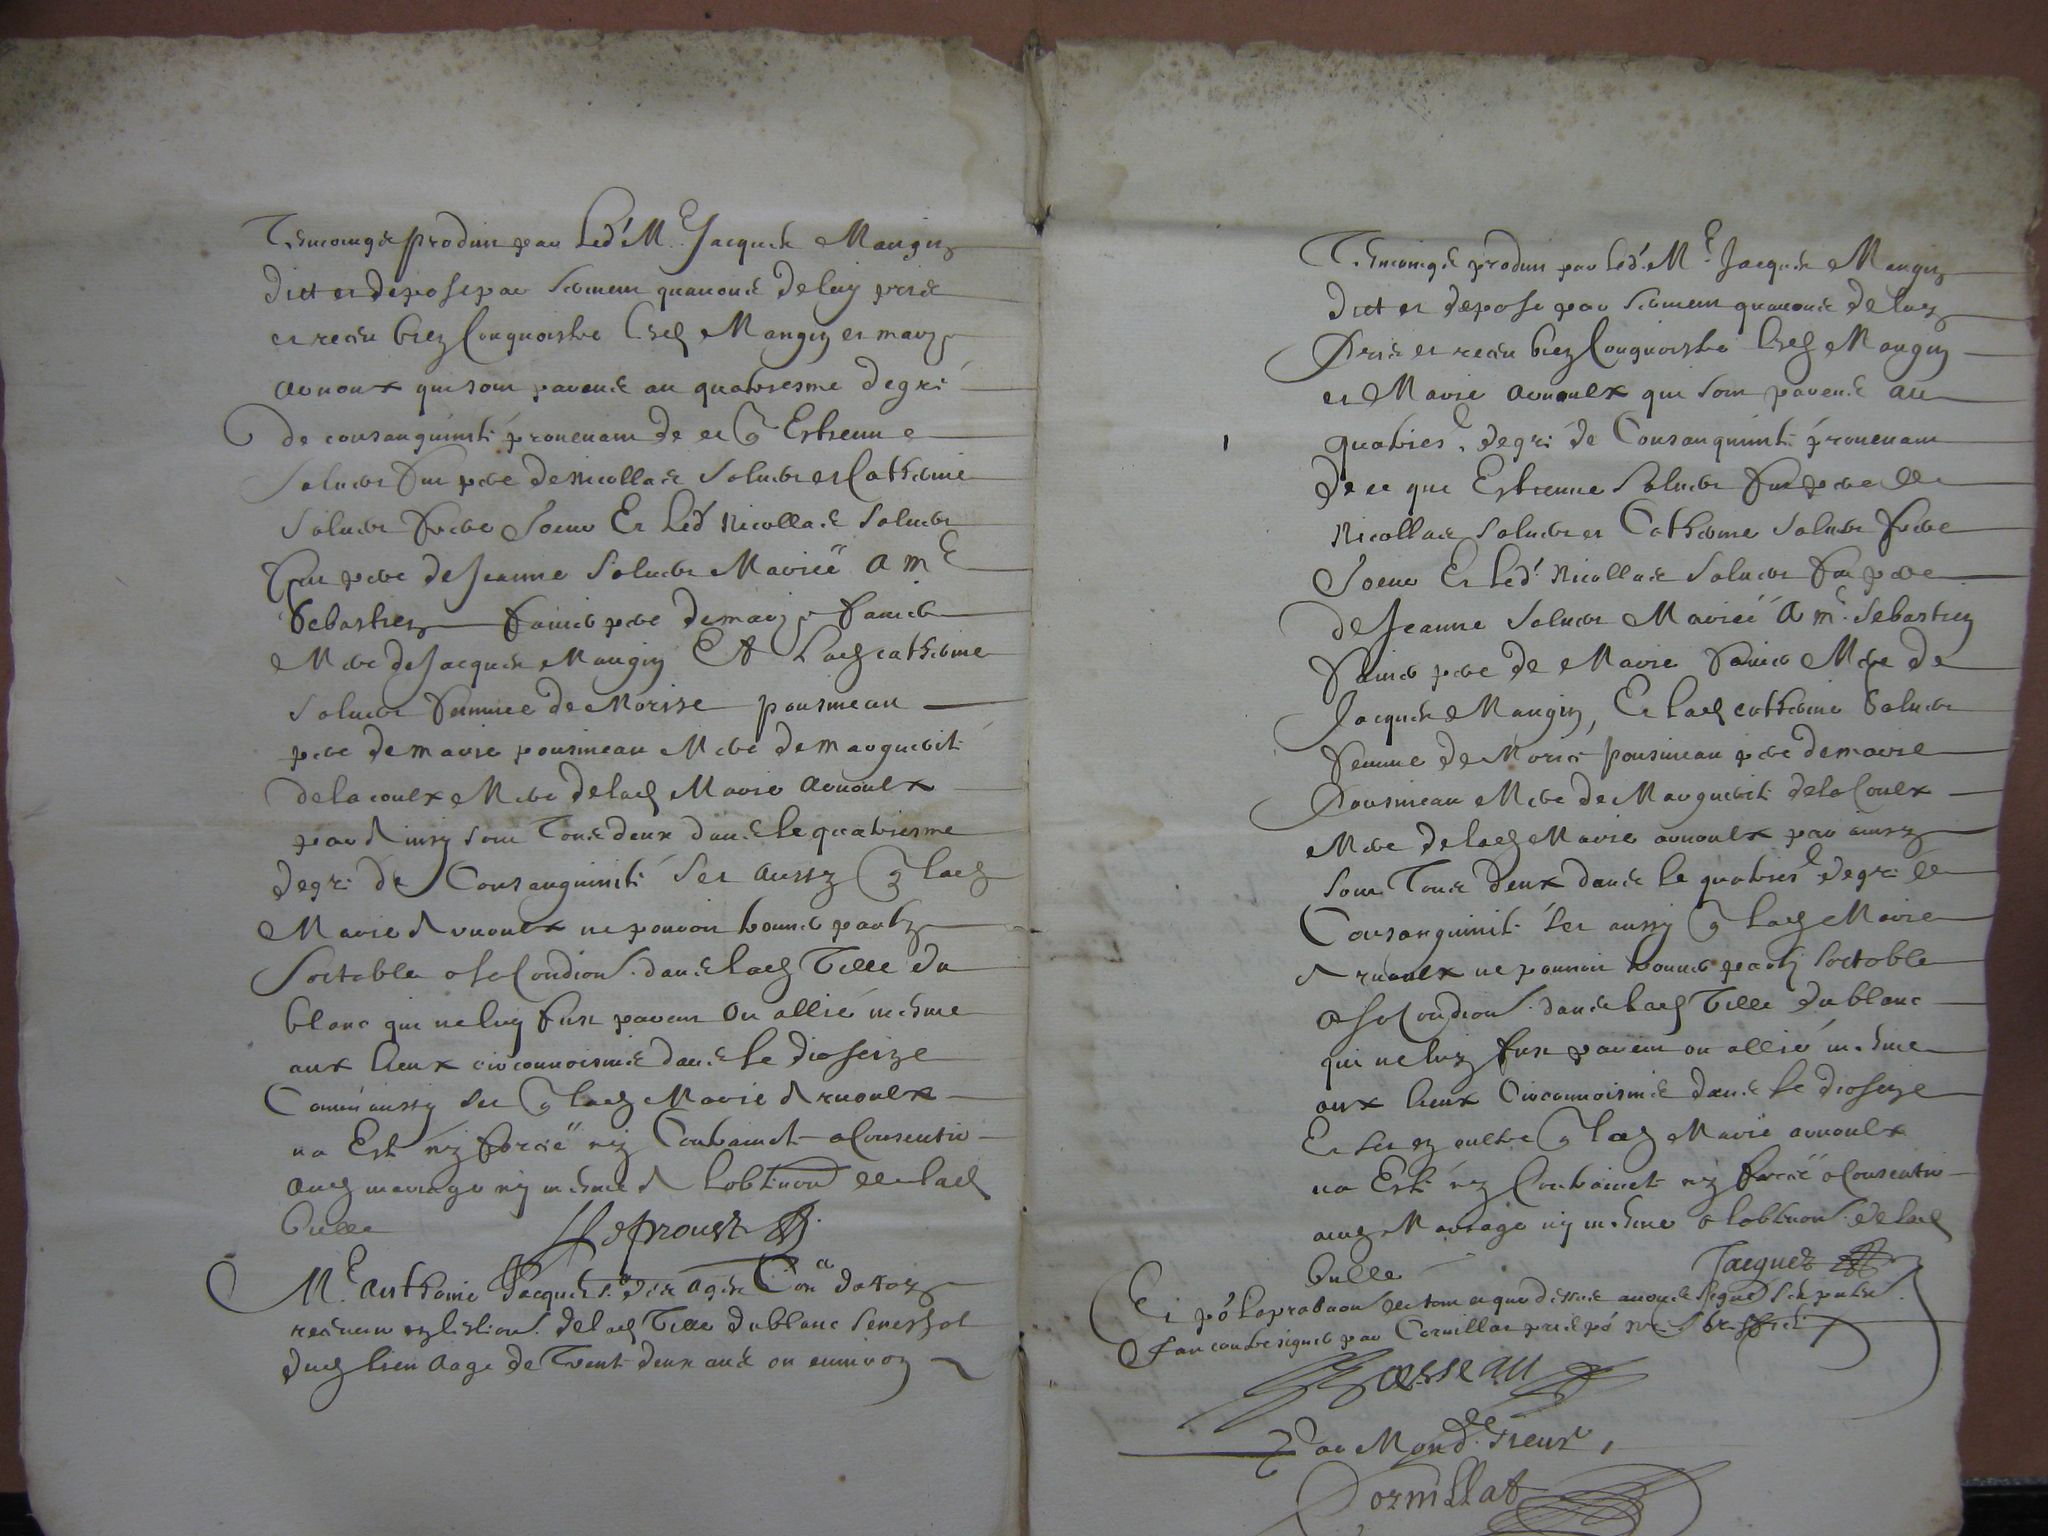 Tesmoingz produit par led' Me Jacques Mangin
dict et depose par serment quavons de luy pris
et receu bien congnoistre lesd Mangin et marye
arnoux qui sont parens au quatriesme degré
de consanguinité provenant de ce q Estienne
Saluder fut pere de Nicollas Saluder et Catherine
Saluder frere soeur Et led' Nicollas Saluder
fut pere de Jeanne Saluder Mariëe a me
Sebastien pere de marye
Mere de Jacques Mangin Et lad catherine
Saluder femme de Morisse pousineau
pere de marie pousineau Mere de margueritte
delacoulx Mere de lad Marie arnoulx
par Ainsy sont Tous deux dans le quatriesme
degré de Consanguinité scet aussy q lad
Marie Arnoulx ne pouvoir trouver party
sortable a sa condion dans lad Ville du
blanc qui ne luy fust parent ou allié mesme
aux lieux circonvoisins dans le dioseize
Comme aussy scet q lad Marie Arnoulx
na Esté ny forcëe ny Contrainte a consentir
aud mariage ny mesme A lobtenon de lad
bulle Leproust
Me anthoine Jacques sr des ages Conr du roy
receveur en lelection de lad Ville du blanc seneschal
dud lieu aage de Trente deux ans ou environ
Tesmoingz produit par led' Me Jacques Mangin
dict et depose par serment quavons de luy
Pris et receu bien congnoistre lesd Mangin
et Marie arnoulx qui sont parens au
quatriese degré de Consanguinité provenant
de ce que Estienne Saluder fut pere de
Nicollas Saluder et Catherine Saluder frere
Soeur Et led' Nicollas Saluder fut pere
de Jeanne Saluder Mariée A me Sebastien
pere de Marie Mere de
Jacques Mangin, Et lad catherine Saluder
femme de Moris pousineau pere de marie
Pousineau Mere de Margueritte delacoulx
Mere de lad Marie arnoulx par ainsy
sont Tous deux dans le quatriese degré de
Consanguinité scet aussy q lad Marie
Arnoulx ne pouvoir trouver party sortable
a sa condion dans lad Ville du blanc
qui ne luy fust parent ou allié mesme
aux lieux Circonvoisins dans le dioseize
Et scet en oultre q lad Marie arnoulx
na Esté ny Contrainte ny forcëe a consentir
aud Mariage ny mesme a lobtenon de lad
bulle Jacques
Et po laprobaon de tout ce que dessus avons signé ces pntes
Fait contresigner par Cornillat
Gasseau
Par Mond. sieur,
Cornillat